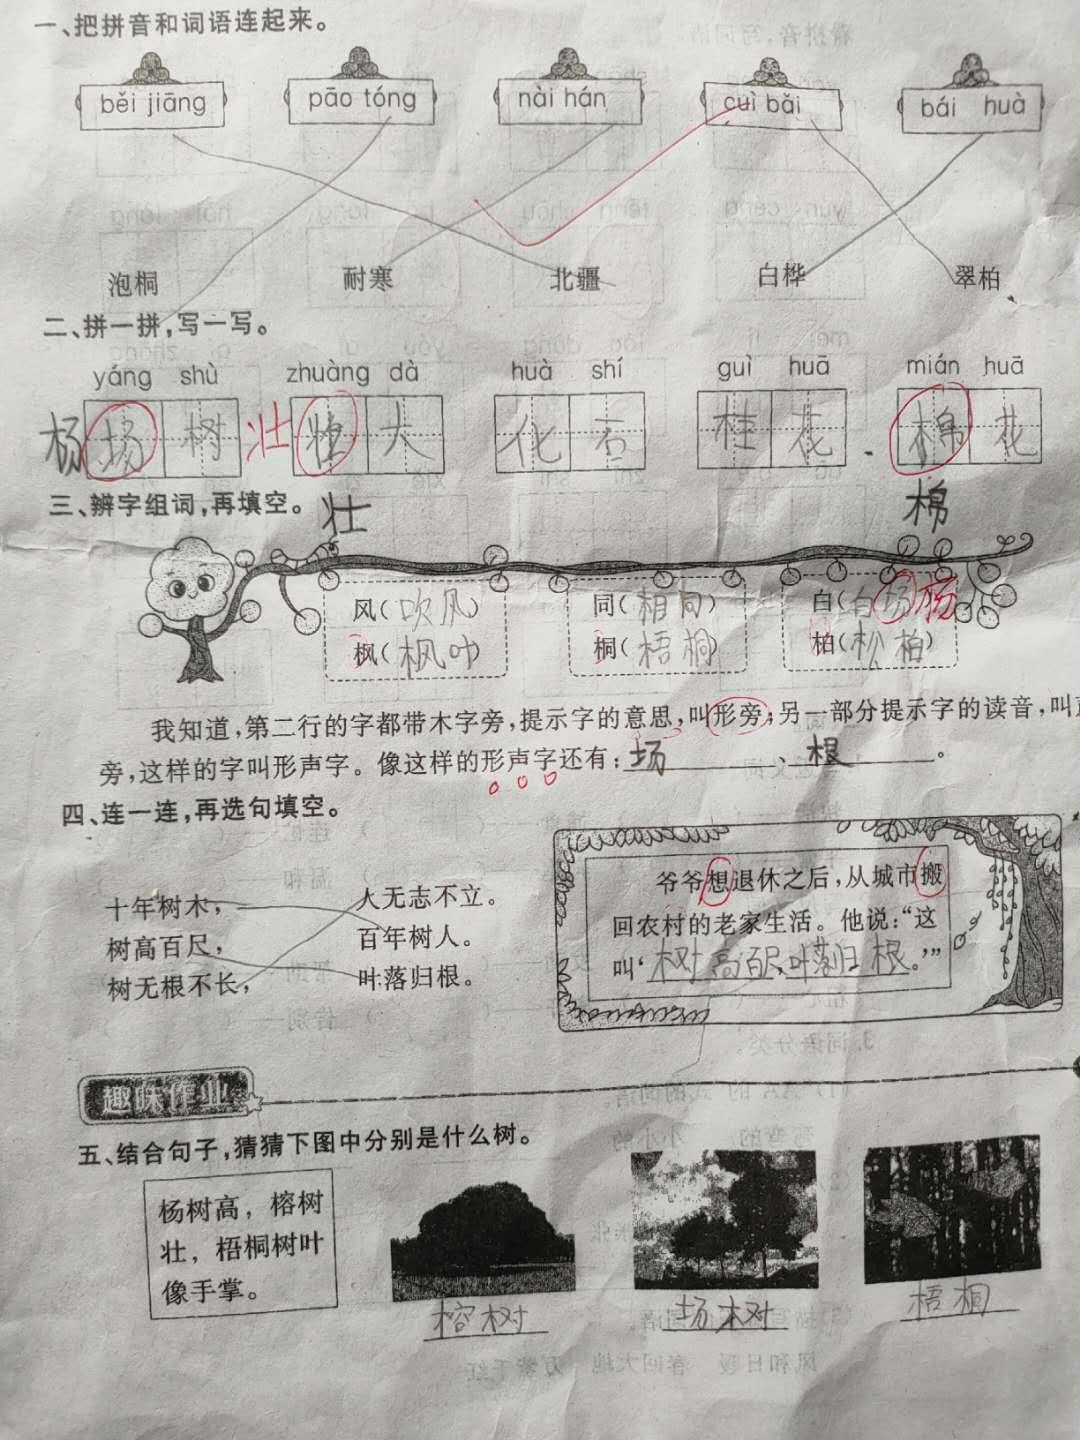 一、把拼音和词语连起来。
běi jiāng pāo tóng nài hán cuì bǎi bái huà
泡桐 耐寒 北疆 白桦 翠柏
二、拼一拼,写一写。
yáng shù zhuàng dà huà shí guì huā mián huā
杨 场树 壮 壮大 化石 桂花 棉花
三、辨字组词,再填空。 壮 棉
风(吹风) 同(相同) 白(白场) 杨
枫(枫叶) 桐(梧桐) 柏(松柏)
我知道,第二行的字都带木字旁,提示字的意思,叫形旁;另一部分提示字的读音,叫
旁,这样的字叫形声字。像这样的形声字还有:场、根。
四、连一连,再选句填空。
十年树木, 人无志不立。
树高百尺, 百年树人。
树无根不长, 叶落归根。
爷爷想退休之后,从城市搬
回农村的老家生活。他说:“这
叫‘树高百尺,叶落归根。’”
趣味作业
五、结合句子,猜猜下图中分别是什么树。
杨树高,榕树
壮,梧桐树叶
像手掌。
榕树 场树 梧桐